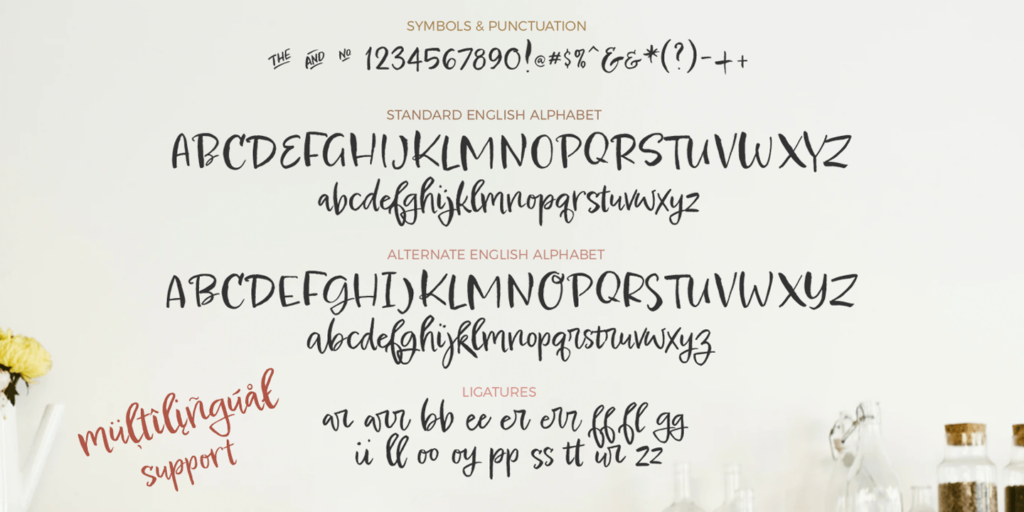 SYMBOLS & PUNCTUATION
THE AND NO 1234567890!@#$%^&&*(?)-++
STANDARD ENGLISH ALPHABET
ABCDEFGHIJKLMNOPQRSTUVWXYZ
abcdefghijklmnopqrstuvwxyz
ALTERNATE ENGLISH ALPHABET
ABCDEFGHIJKLMNOPQRSTUVWXYZ
abcdefghijklmnopqrstuvwxyz
LIGATURES
ar arr bb ee er err ff fl gg
ii ll oo oy pp ss tt ur zz
mültîlįñgúåł
support